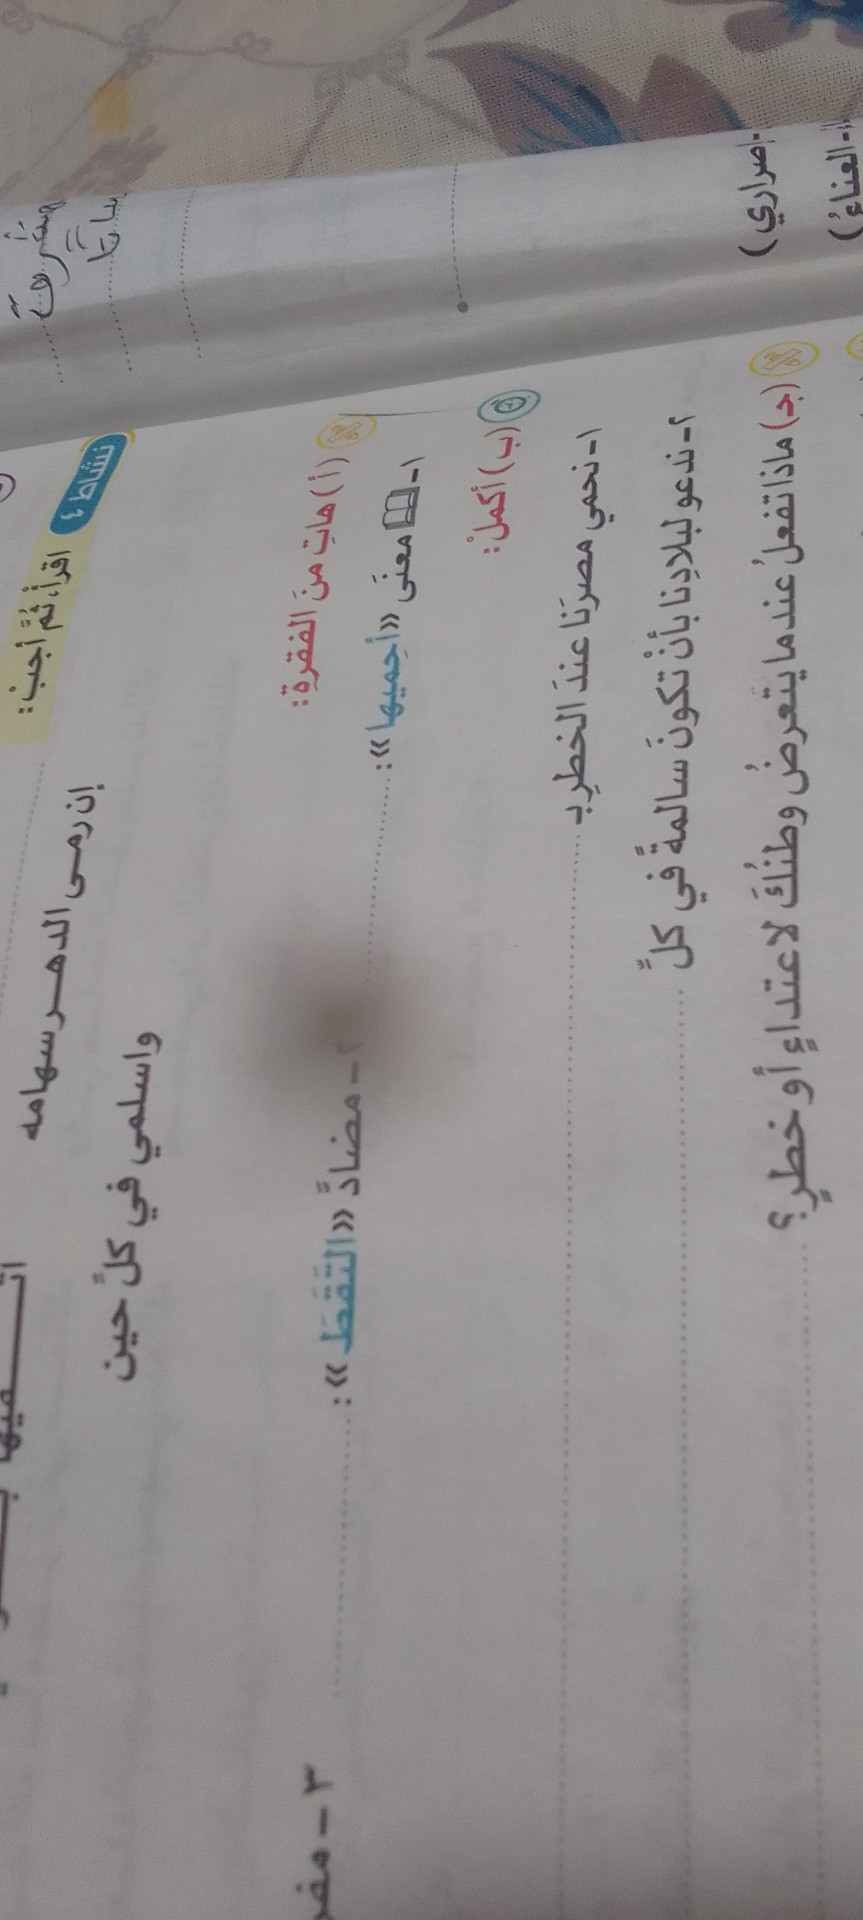 نشاط ٤ اقرأ، ثُمَّ أجبْ:
إن رمى الدهر سهامه
واسلمي في كلِّ حين
(أ) هاتِ منَ الفقرةِ:
١- معنَى «أحميها»: ..........
٢- مضادَّ «التقطَ»: ..........
٣-
(ب) أكملْ:
١- نحمي مصرَنا عندَ الخطرِ بـ ..........
٢- ندعو لبلادِنا بأنْ تكونَ سالمةً في كلِّ ..........
(جـ) ماذا تفعلُ عندما يتعرضُ وطنُكَ لاعتداءٍ أو خطرٍ؟ ..........
إصراري)
العناءُ)